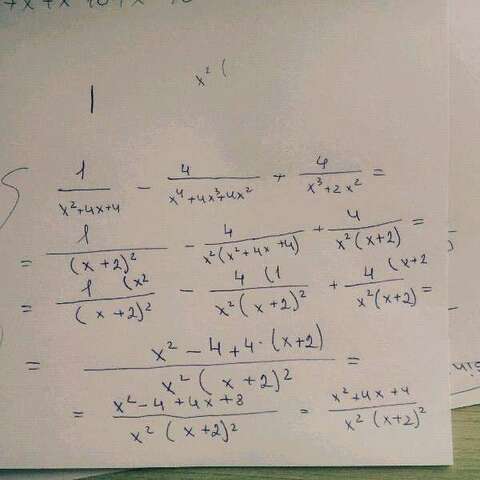 x² (
1
1/(x²+4x+4) - 4/(x⁴+4x³+4x²) + 4/(x³+2x²) =
= 1/(x+2)² - 4/(x²(x²+4x+4)) + 4/(x²(x+2)) =
= 1 (x²/(x+2)² - 4 (1/(x²(x+2)²) + 4 (x+2/(x²(x+2)) =
= (x²-4+4·(x+2))/(x²(x+2)²) =
= (x²-4+4x+8)/(x²(x+2)²) = (x²+4x+4)/(x²(x+2)²)